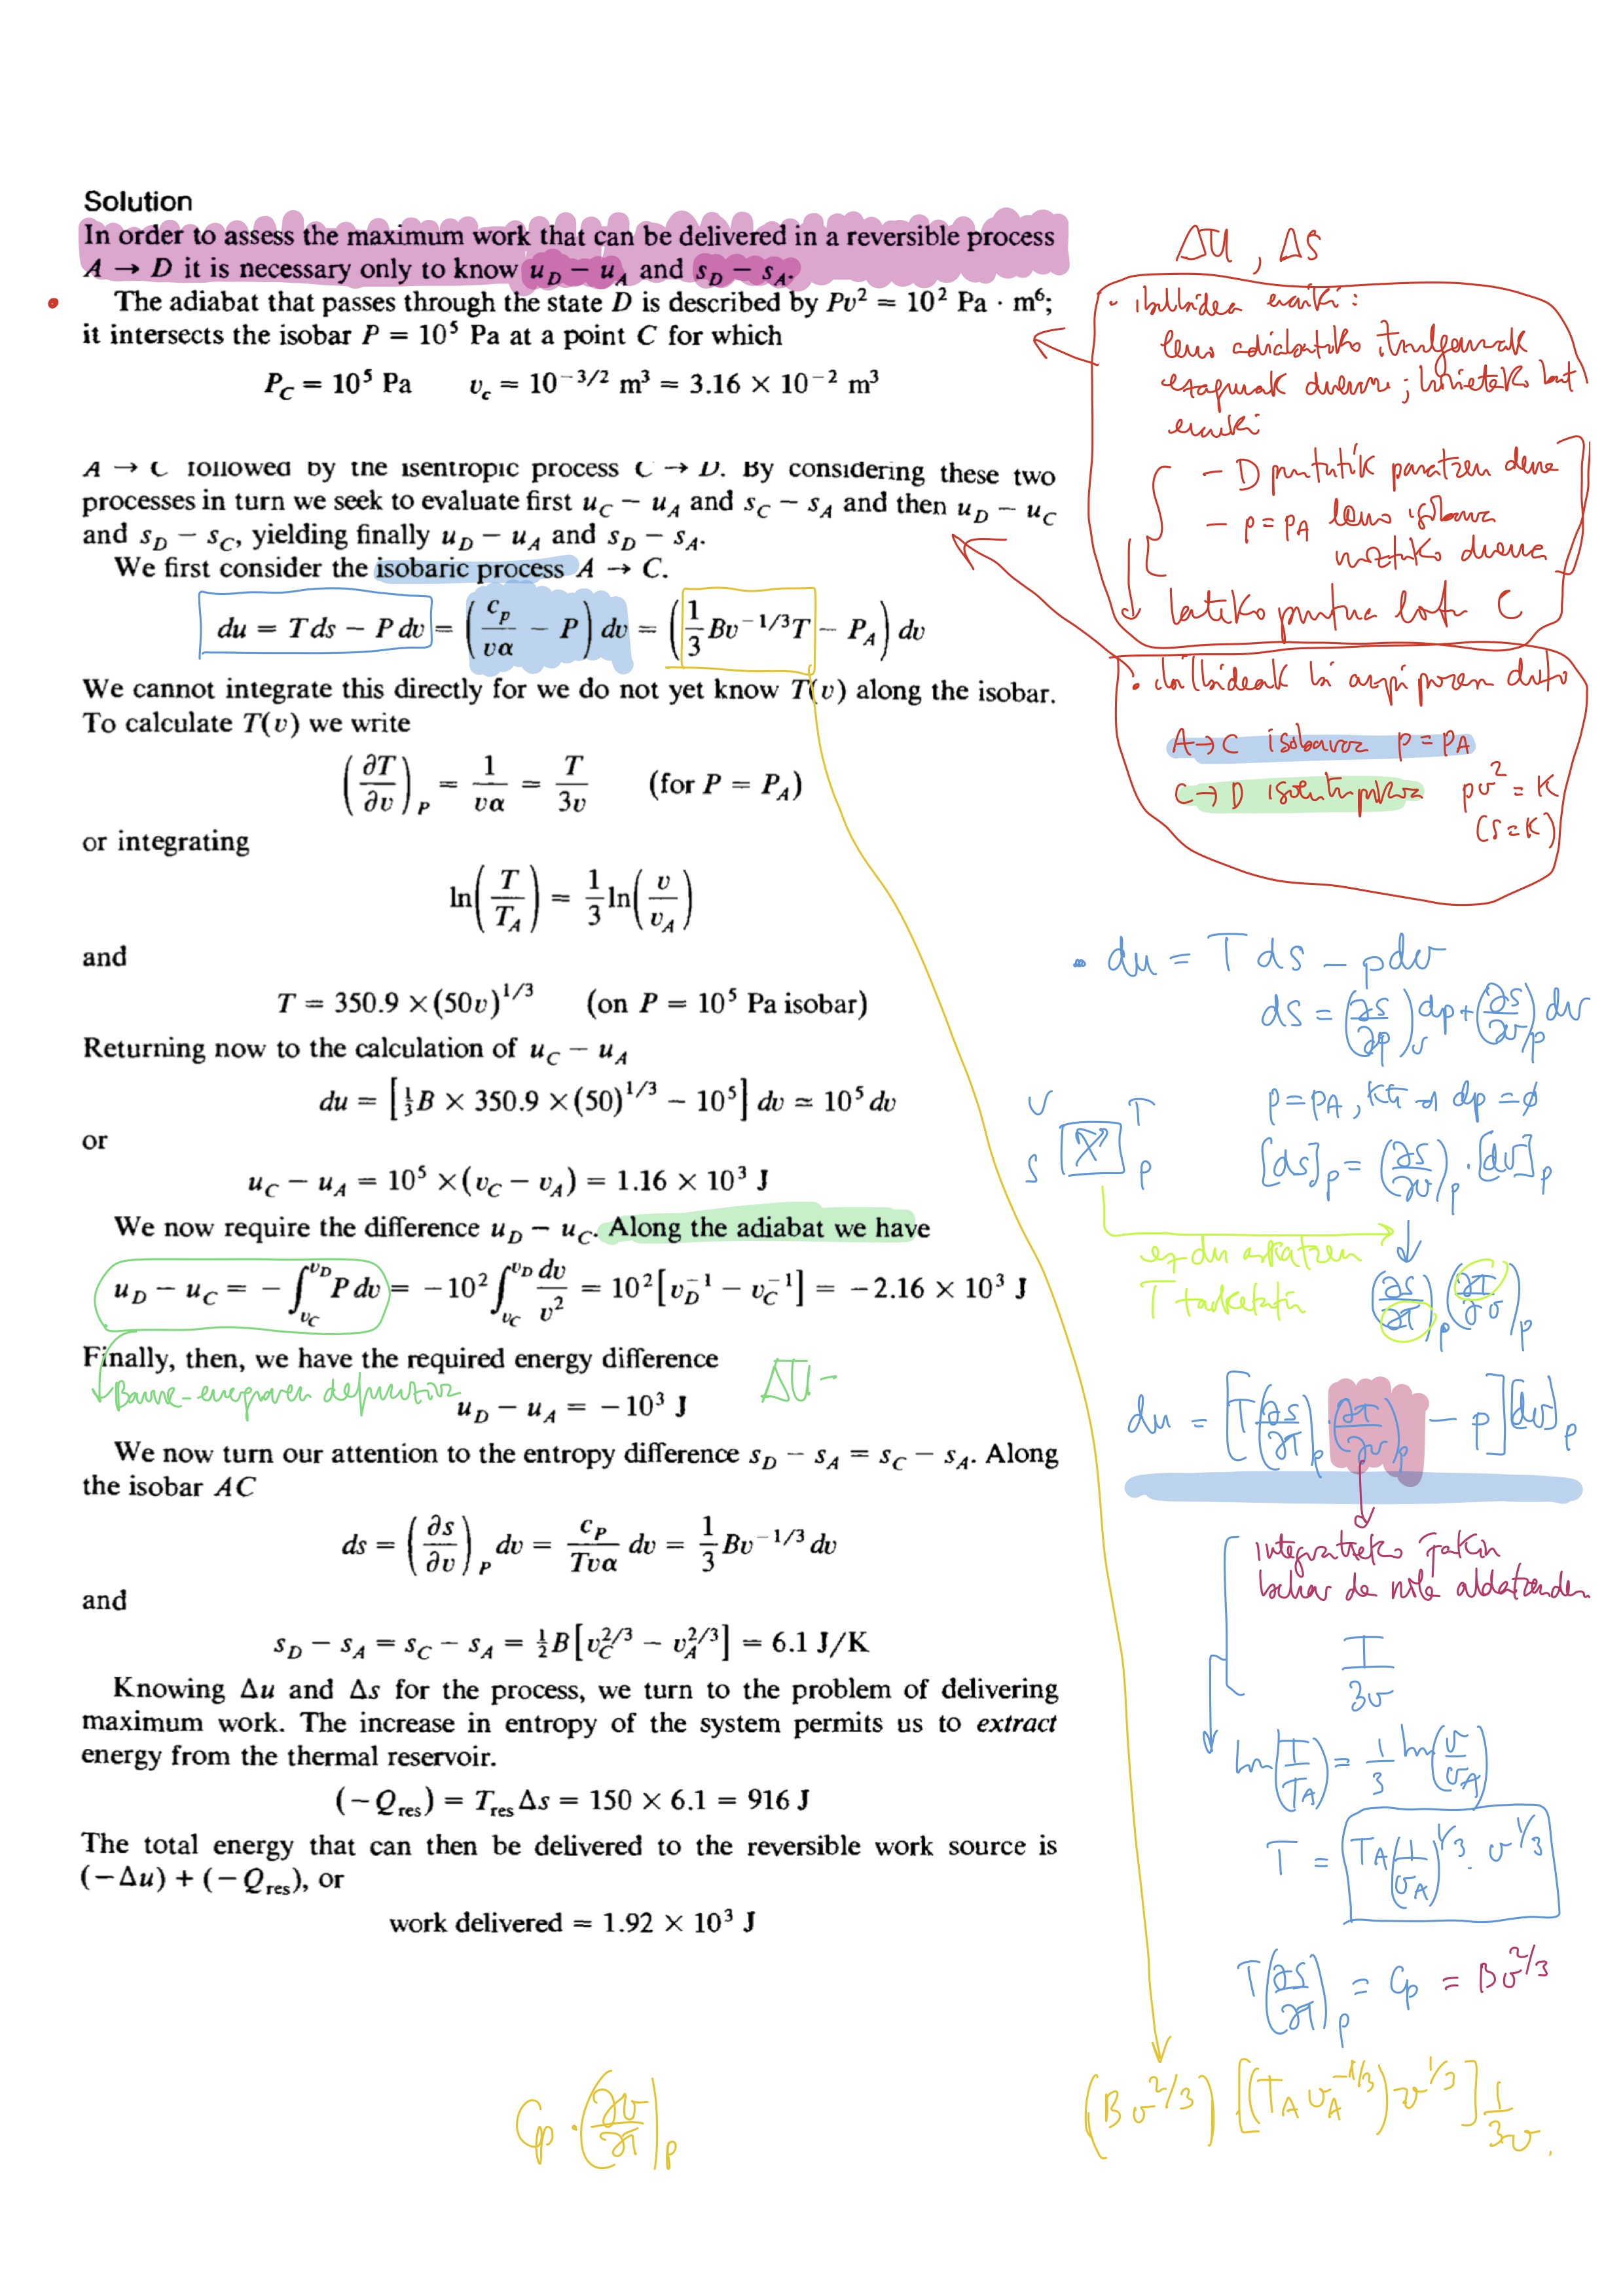 Solution
In order to assess the maximum work that can be delivered in a reversible process
A → D it is necessary only to know u_D − u_A and s_D − s_A.
The adiabat that passes through the state D is described by Pv² = 10² Pa · m⁶;
it intersects the isobar P = 10⁵ Pa at a point C for which
P_C = 10⁵ Pa v_c = 10^{−3/2} m³ = 3.16 × 10^{−2} m³
A → C followed by the isentropic process C → D. By considering these two
processes in turn we seek to evaluate first u_C − u_A and s_C − s_A and then u_D − u_C
and s_D − s_C, yielding finally u_D − u_A and s_D − s_A.
We first consider the isobaric process A → C.
du = T ds − P dv = (c_p/vα − P) dv = (1/3 Bv^{−1/3}T − P_A) dv
We cannot integrate this directly for we do not yet know T(v) along the isobar.
To calculate T(v) we write
(∂T/∂v)_P = 1/vα = T/3v (for P = P_A)
or integrating
ln(T/T_A) = 1/3 ln(v/v_A)
and
T = 350.9 × (50v)^{1/3} (on P = 10⁵ Pa isobar)
Returning now to the calculation of u_C − u_A
du = [1/3 B × 350.9 × (50)^{1/3} − 10⁵] dv ≃ 10⁵ dv
or
u_C − u_A = 10⁵ × (v_C − v_A) = 1.16 × 10³ J
We now require the difference u_D − u_C. Along the adiabat we have
u_D − u_C = −∫_{v_C}^{v_D} P dv = −10² ∫_{v_C}^{v_D} dv/v² = 10²[v_D^{−1} − v_C^{−1}] = −2.16 × 10³ J
Finally, then, we have the required energy difference
Barne-energiaren definizioa
ΔU -
u_D − u_A = −10³ J
We now turn our attention to the entropy difference s_D − s_A = s_C − s_A. Along
the isobar AC
ds = (∂s/∂v)_P dv = c_P/Tvα dv = 1/3 Bv^{−1/3} dv
and
s_D − s_A = s_C − s_A = ½B[v_C^{2/3} − v_A^{2/3}] = 6.1 J/K
Knowing Δu and Δs for the process, we turn to the problem of delivering
maximum work. The increase in entropy of the system permits us to extract
energy from the thermal reservoir.
(−Q_res) = T_res Δs = 150 × 6.1 = 916 J
The total energy that can then be delivered to the reversible work source is
(−Δu) + (−Q_res), or
work delivered = 1.92 × 10³ J
C_p · (∂v/∂T)_p
ΔU, ΔS
· ibilbidea eraiki:
lerro adiabatiko
ezagunak
eraiki
- D puntutik pasatzen dena
- p = p_A lerro isobaroa
moztuko duena
puntua C
· ibilbideak bi azpi
A → C isobaroa p = p_A
C → D isentropikoa pv² = K
(S = K)
· du = T ds − p dv
ds = (∂s/∂p)_v dp + (∂s/∂v)_p dv
v T
s p
p = p_A, kte → dp = ∅
[ds]_p = (∂s/∂v)_p · [dv]_p
ez du askatzen
T
(∂s/∂T)_p (∂T/∂v)_p
du = [T(∂s/∂T)_p · (∂T/∂v)_p − p][dv]_p
integratzeko jakin
behar da nola aldatzen den
T/3v
ln(T/T_A) = 1/3 ln(v/v_A)
T = T_A (1/v_A)^{1/3} · v^{1/3}
T(∂s/∂T)_p = C_p = Bv^{2/3}
(B v^{2/3}) [(T_A v_A^{−1/3}) v^{1/3}] 1/3v.